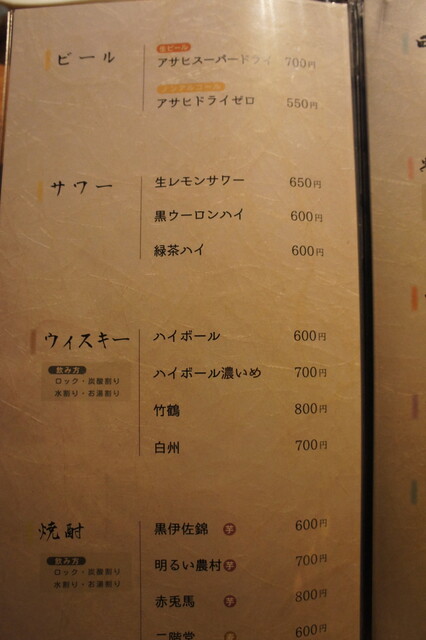 ビール
生ビール
アサヒスーパードライ 700円
ノンアルコール
アサヒドライゼロ 550円
サワー
生レモンサワー 650円
黒ウーロンハイ 600円
緑茶ハイ 600円
ウィスキー
飲み方
ロック・炭酸割り
水割り・お湯割り
ハイボール 600円
ハイボール濃いめ 700円
竹鶴 800円
白州 700円
焼酎
飲み方
ロック・炭酸割り
水割り・お湯割り
黒伊佐錦 芋 600円
明るい農村 芋 700円
赤兎馬 芋 800円
二階堂 600円